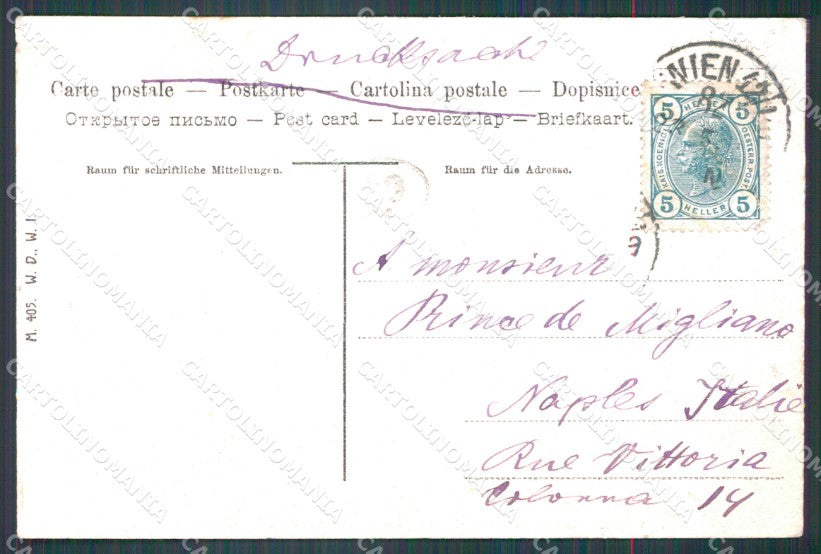 Drucksache
Carte postale — Postkarte — Cartolina postale — Dopisnice
Открытое письмо — Post card — Levelező-lap — Briefkaart.
WIEN
5 HELLER 5
KAIS. KÖNIGL. OESTERR. POST
5 HELLER 5
Raum für schriftliche Mitteilungen.
Raum für die Adresse.
M. 405. W. D., W. I.
A monsieur
Prince de Migliano
Naples Italie
Rue Vittoria
Colonna 14
CARTOLINOMANIA